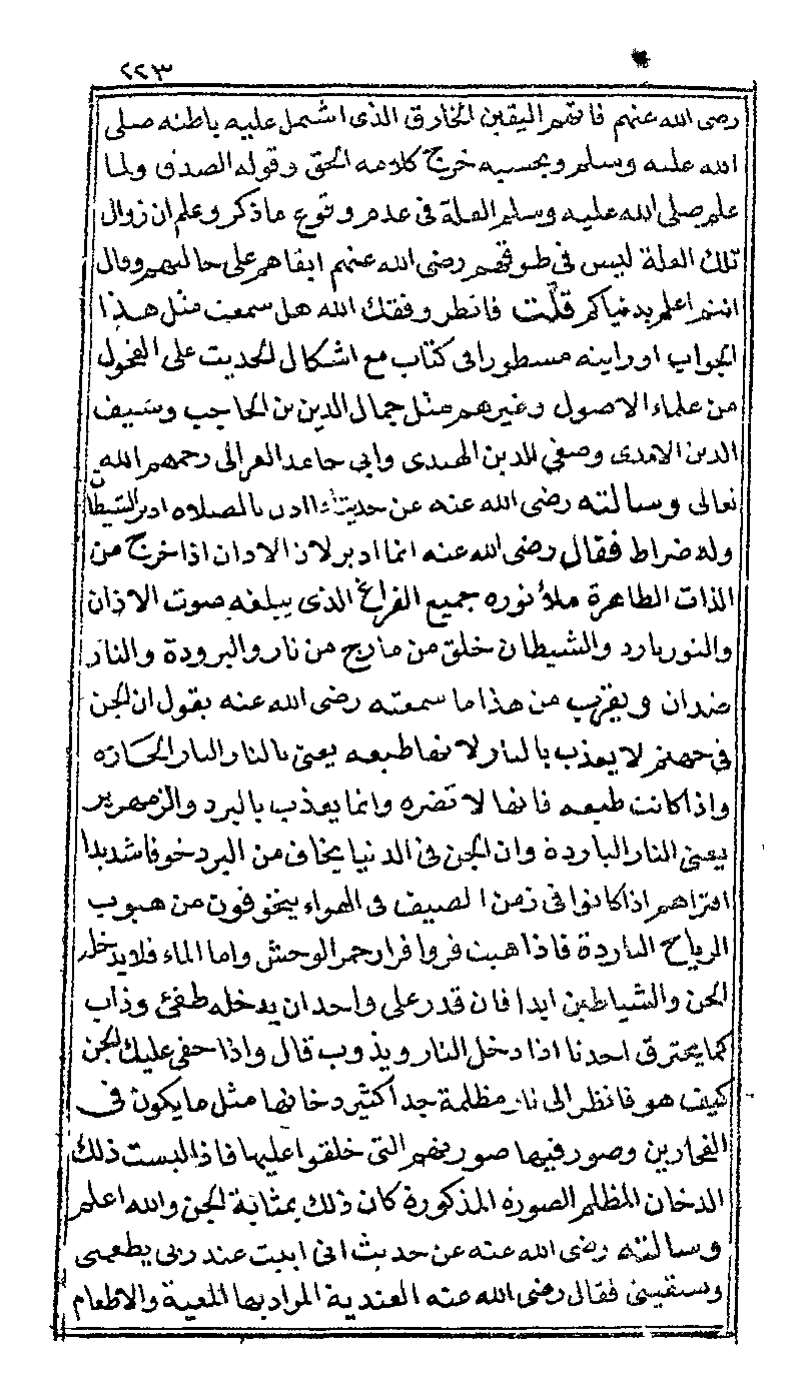 ٢٢٣
رضى الله عنهم فاتهم اليقين الخارق الذى اشتمل عليه باطنه صلى
الله عليه وسلم وبحسبه خرج كلامه الحق وقوله الصدق ولما
علم صلى الله عليه وسلم العلة فى عدم وقوع ماذكر وعلم ان زوال
تلك العلة ليس فى طوقهم رضى الله عنهم ابقاهم على حالتهم وقال
انتم اعلم بدنياكم قلت فانظر وفقك الله هل سمعت مثل هذا
الجواب اورايته مسطورا فى كتاب مع اشكال الحديث على الفحول
من علماء الاصول وغيرهم مثل جمال الدين بن الحاجب وسيف
الدين الامدى وصفي الدين الهندى وابى حامد الغزالى رحمهم الله
تعالى وسالته رضى الله عنه عن حديث اذا اذن بالصلاه ادبر الشيطان
وله ضراط فقال رضى الله عنه انما ادبر لان الاذان اذا خرج من
الذات الطاهرة ملأ نوره جميع الفراغ الذى يبلغه صوت الاذان
والنور بارد والشيطان خلق من مارج من نار والبرودة والنار
ضدان ويقرب من هذا ما سمعته رضى الله عنه يقول ان الجن
فى جهنم لا يعذب بالنار لانها طبعه يعنى بالنار النار الحارة
واذا كانت طبعه فانها لا تضره وانما يعذب بالبرد والزمهرير
يعنى النار الباردة وان الجن فى الدنيا يخاف من البرد خوفا شديدا
افتراهم اذا كانوا فى زمن الصيف فى الهواء يتخوفون من هبوب
الرياح الباردة فاذا هبت فروا فرار حمر الوحش واما الماء فلا يدخله
الجن والشياطين ابدا فان قدر على واحد ان يدخله طفئ وذاب
كما يحترق احدنا اذا دخل النار ويذوب قال واذا خفى عليك الجن
كيف هو فانظر الى نار مظلمة جدا كثير دخانها مثل ما يكون فى
الفخارين وصور فيها صورتهم التى خلقوا عليها فاذا البست ذلك
الدخان المظلم الصورة المذكورة كان ذلك بمثابة الجن والله اعلم
وسالته رضى الله عنه عن حديث انى ابيت عند ربى يطعمنى
وسقينى فقال رضى الله عنه العندية المراد بها المعية والاطعام